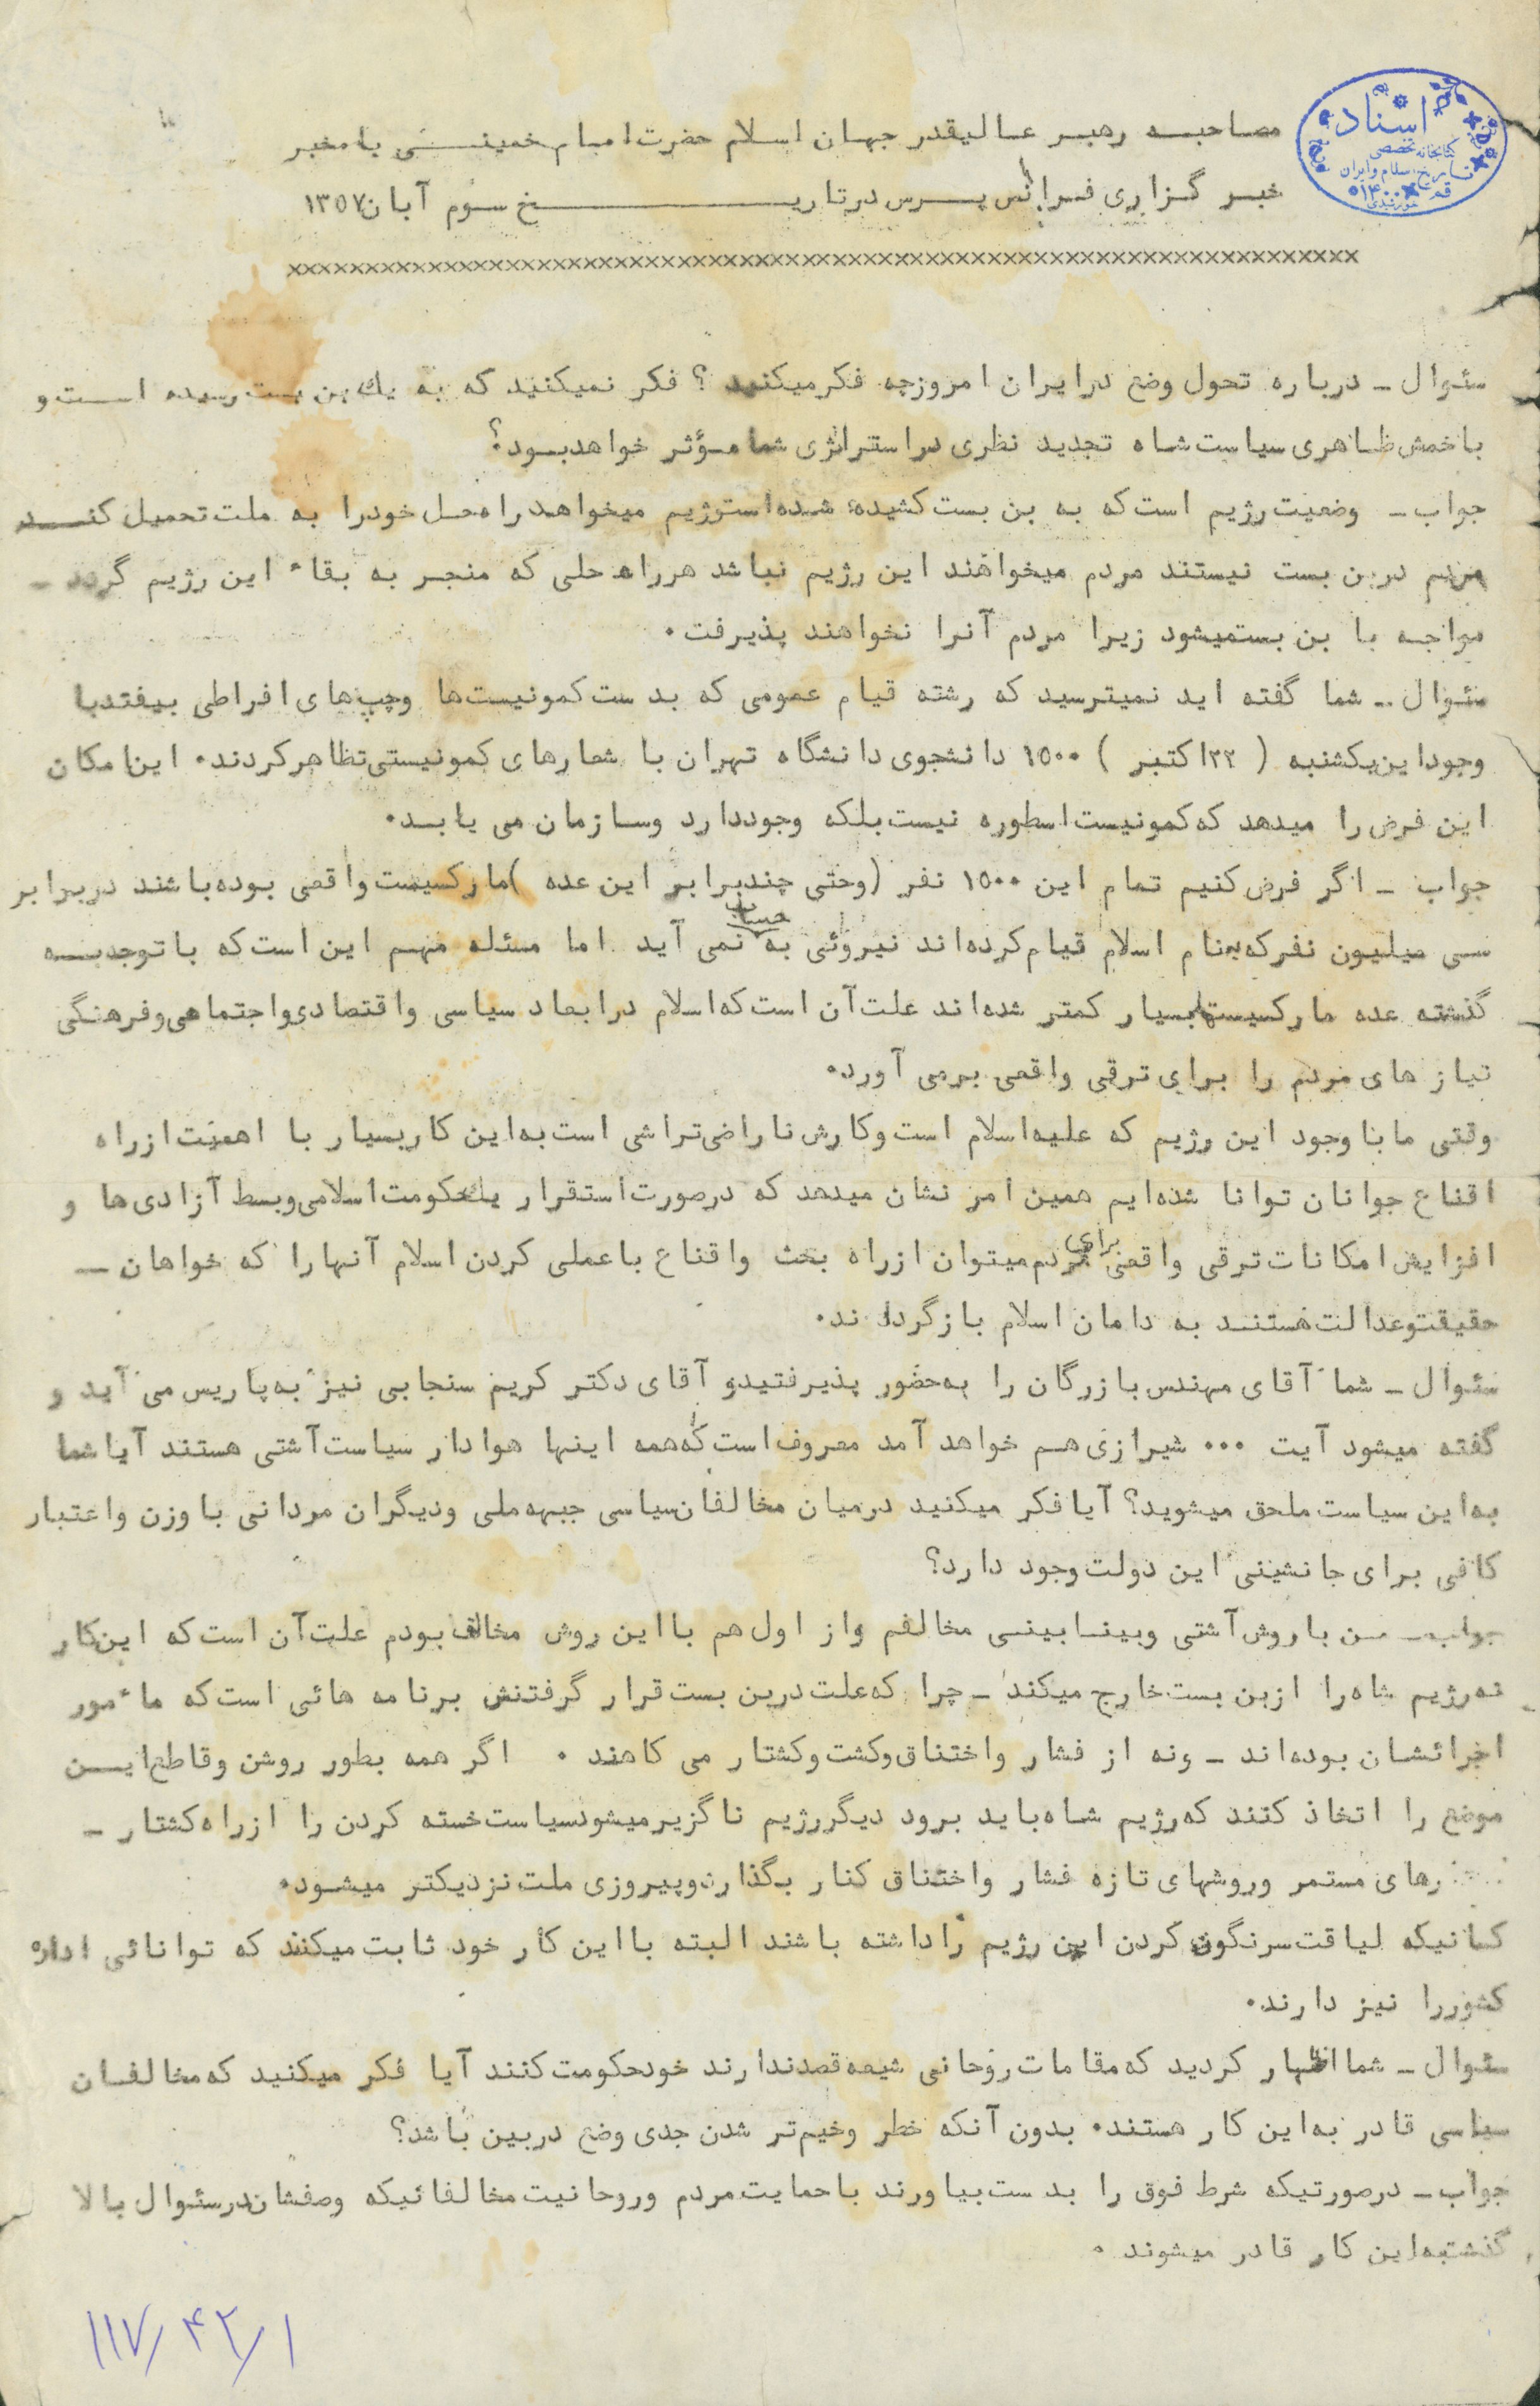 اسناد
کتابخانه تخصصی
تاریخ اسلام و ایران
قم
مصاحبه رهبر عالیقدر جهان اسلام حضرت امام خمینی با مخبر
خبر گزاری فرانس پرس در تاریخ سوم آبان ۱۳۵۷
××××××××××××××××××××××××××××××××××××××××××××××××××××××××××××××××××××××
سئوال ـ درباره تحول وضع در ایران امروز چه فکر میکنید ؟ فکر نمیکنید که به یك بن بست رسیده است و
با خمش ظاهری سیاست شاه تجدید نظری در استراتژی شما مؤثر خواهد بود؟
جواب ـ وضعیت رژیم است که به بن بست کشیده شده است رژیم میخواهد راه حل خود را به ملت تحمیل کند
مردم در بن بست نیستند مردم میخواهند این رژیم نباشد هر راه حلی که منجر به بقاء این رژیم گردد ـ
مواجه با بن بست میشود زیرا مردم آنرا نخواهند پذیرفت .
سئوال ـ شما گفته اید نمیترسید که رشته قیام عمومی که بدست کمونیست ها و چپ های افراطی بیفتد با
وجود این یکشنبه ( ۲۲ اکتبر ) ۱۵۰۰ دانشجوی دانشگاه تهران با شعارهای کمونیستی تظاهر کردند . این امکان
این فرض را میدهد که کمونیست اسطوره نیست بلکه وجود دارد و سازمان می یابد .
جواب ـ اگر فرض کنیم تمام این ۱۵۰۰ نفر (و حتی چند برابر این عده )مارکسیست واقعی بوده باشند در برابر
سی میلیون نفر که بنام اسلام قیام کرده اند نیروئی به حساب نمی آید اما مسئله مهم این است که با توجه به
گذشته عده مارکسیستها بسیار کمتر شده اند علت آن است که اسلام در ابعاد سیاسی و اقتصادی و اجتماعی و فرهنگی
نیاز های مردم را برای ترقی واقعی برمی آورد .
وقتی ما با وجود این رژیم که علیه اسلام است و کارش ناراضی تراشی است به این کار بسیار با اهمیت از راه
اقناع جوانان توانا شده ایم همین امر نشان میدهد که در صورت استقرار یك حکومت اسلامی و بسط آزادی ها و
افزایش امکانات ترقی واقعی برای مردم میتوان از راه بحث و اقناع با عملی کردن اسلام آنها را که خواهان ـ
حقیقت و عدالت هستند به دامان اسلام باز گرداند .
سئوال ـ شما آقای مهندس بازرگان را به حضور پذیرفتید و آقای دکتر کریم سنجابی نیز به پاریس می آید و
گفته میشود آیت ... شیرازی هم خواهد آمد معروف است که همه اینها هوادار سیاست آشتی هستند آیا شما
به این سیاست ملحق میشوید؟ آیا فکر میکنید در میان مخالفان سیاسی جبهه ملی و دیگران مردانی با وزن و اعتبار
کافی برای جانشینی این دولت وجود دارد؟
جواب ـ من با روش آشتی و بینابینی مخالفم و از اول هم با این روش مخالف بودم علت آن است که این کار
نه رژیم شاه را از بن بست خارج میکند ـ چرا که علت در بن بست قرار گرفتنش برنامه هائی است که ماء مور
اجرائشان بوده اند ـ و نه از فشار و اختناق و کشت و کشتار می کاهند . اگر همه بطور روشن و قاطع این
موضع را اتخاذ کنند که رژیم شاه باید برود دیگر رژیم ناگزیر میشود سیاست خسته کردن را از راه کشتار ـ
رهای مستمر و روشهای تازه فشار و اختناق کنار بگذارد و پیروزی ملت نزدیکتر میشود .
کسانیکه لیاقت سرنگون کردن این رژیم را داشته باشند البته با این کار خود ثابت میکنند که توانائی اداره
کشور را نیز دارند .
سئوال ـ شما اظهار کردید که مقامات روحانی شیعه قصد ندارند خود حکومت کنند آیا فکر میکنید که مخالفان
سیاسی قادر به این کار هستند . بدون آنکه خطر وخیم تر شدن جدی وضع در بین باشد؟
جواب ـ در صورتیکه شرط فوق را بدست بیاورند با حمایت مردم و روحانیت مخالفانیکه وصفشان در سئوال بالا
گذشت به این کار قادر میشوند .
۱۱۷/۴۲/۱